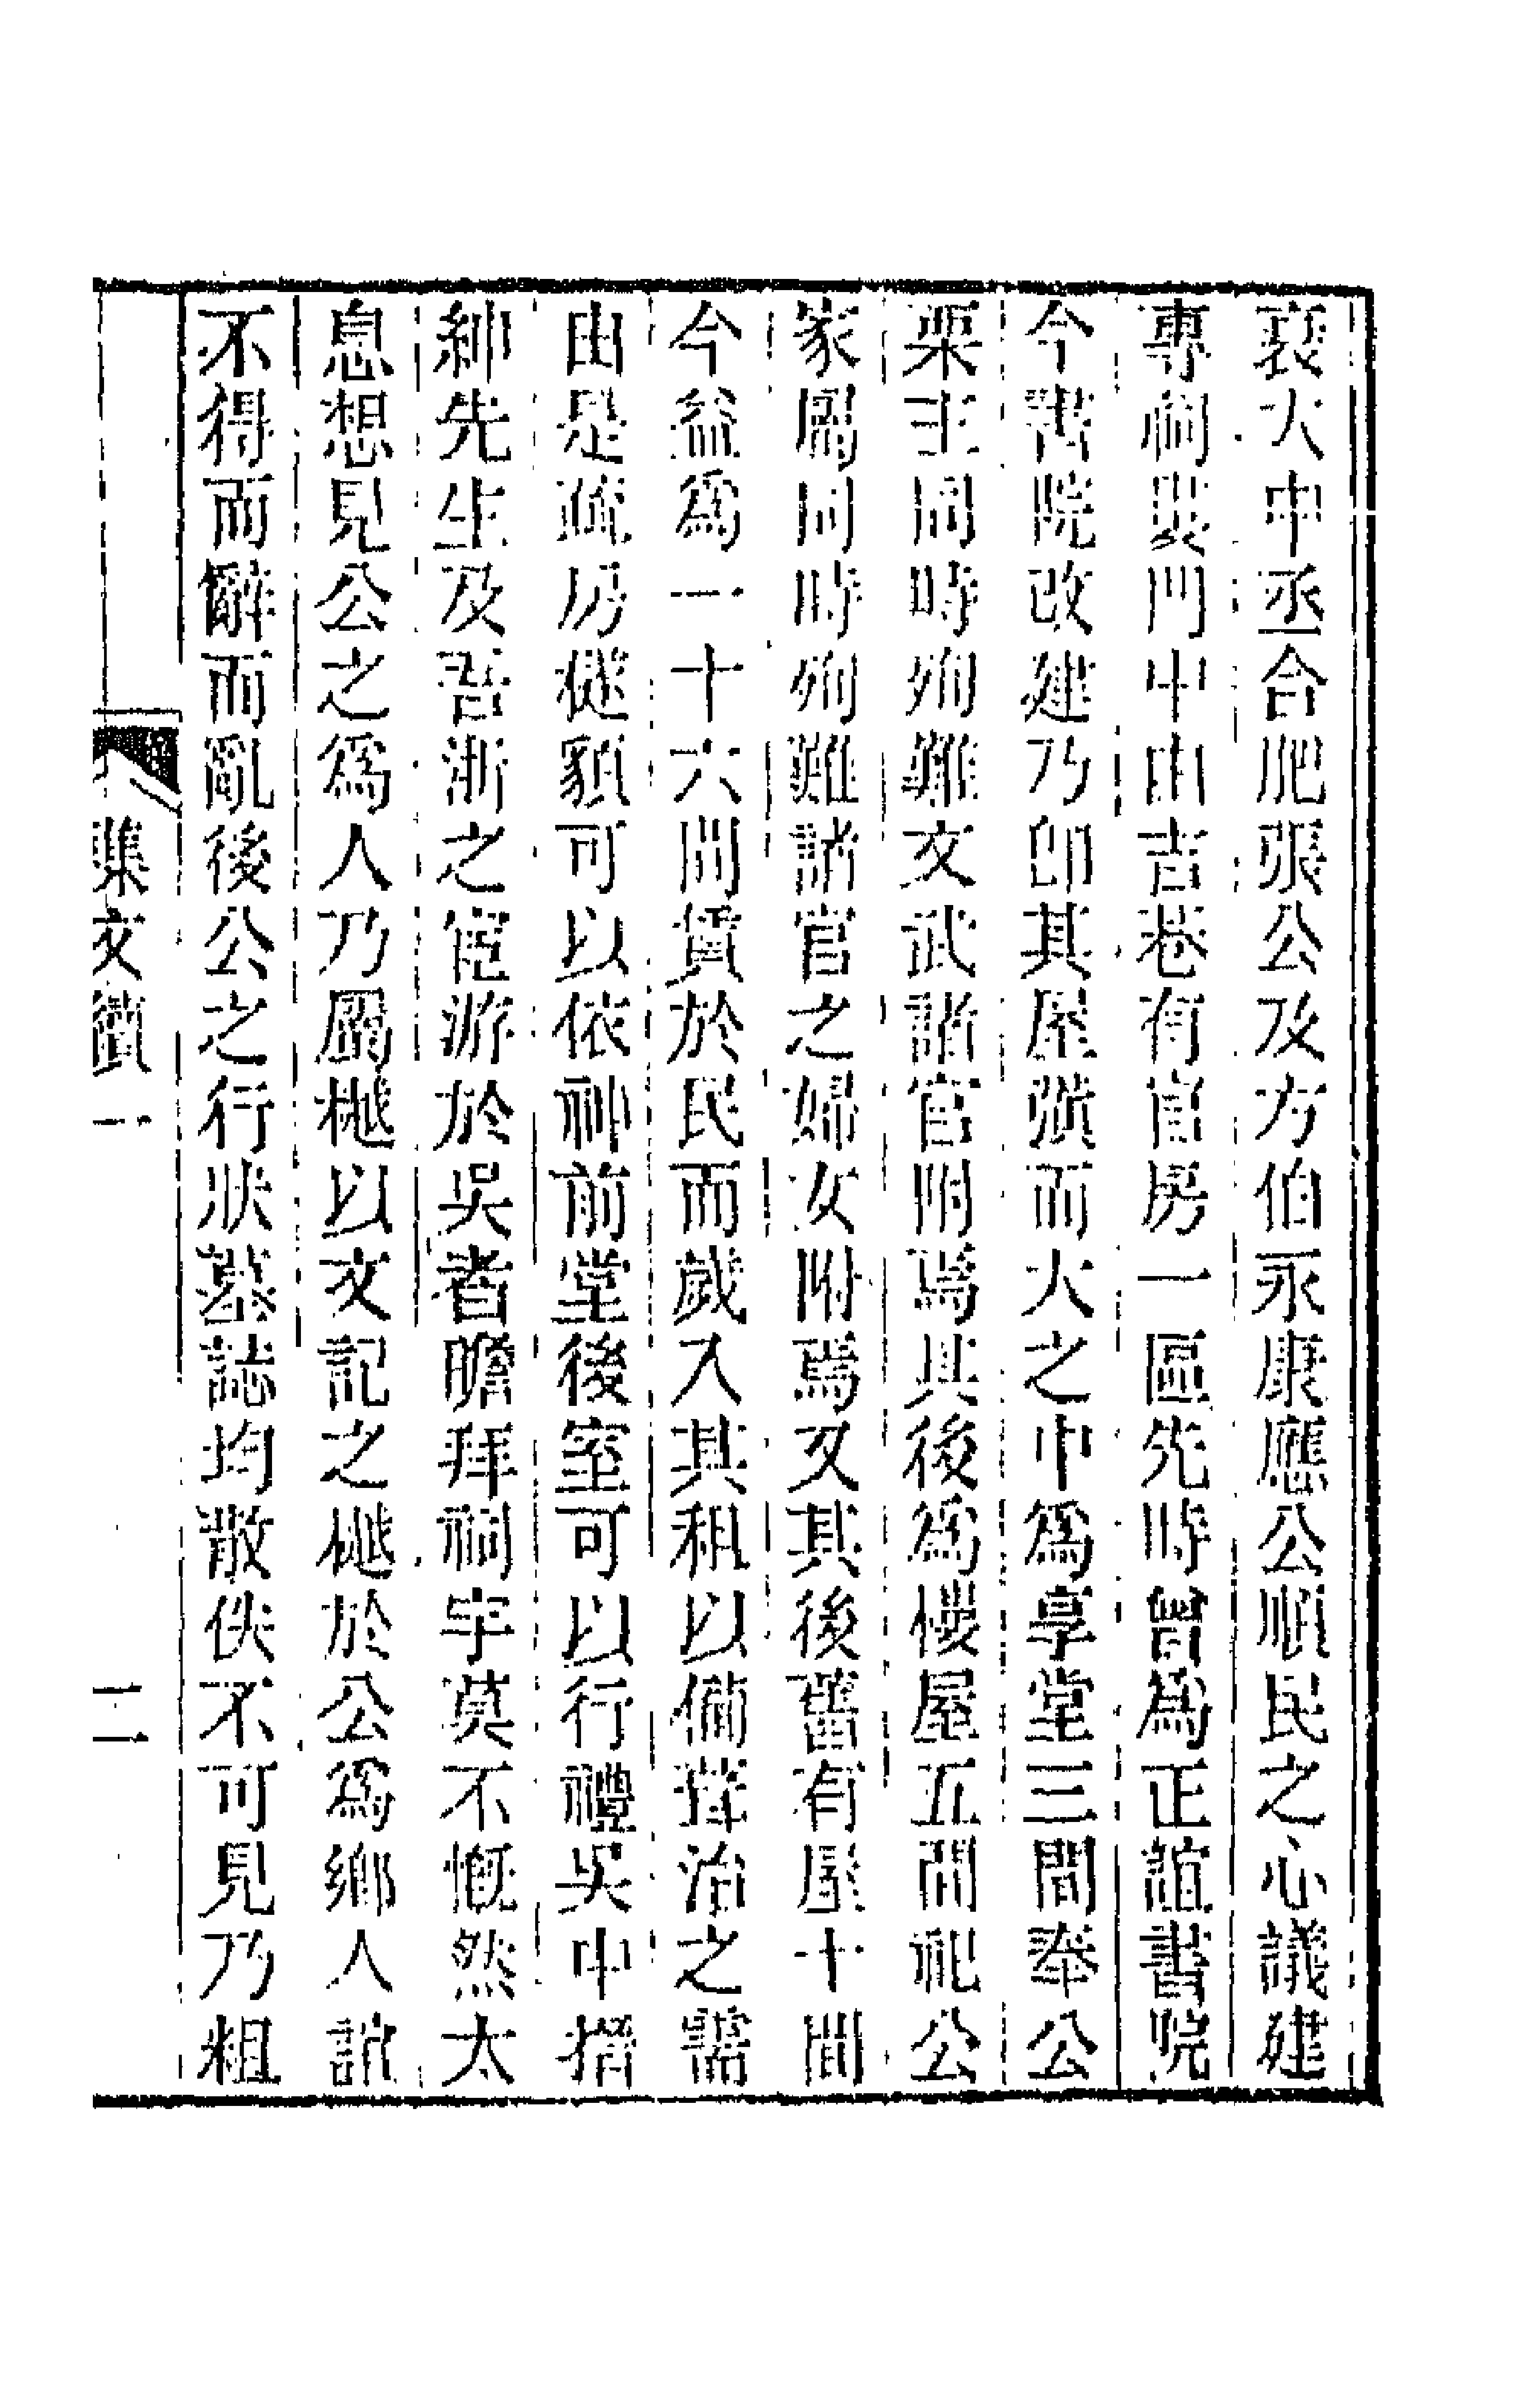 衰大中丞合肥張公及方伯永康應公順民之心議建
專祠葑門中由吉巷有官房一區先時曾為正誼書院
今書院改建乃卽其屋擴而大之中為享堂三間奉公
栗主同時殉難文武諸官附焉其後為樓屋五間祀公
家屬同時殉難諸官之婦女附焉又其後舊有屋十間
今益為一十六間賃於民而歲入其租以備葺治之需
由是疏房檖䫉可以依神前堂後室可以行禮吳中搢
紳先生及吾浙之宦游於吳者瞻拜祠宇莫不慨然太
息想見公之為人乃屬樾以文記之樾於公為鄉人誼
不得而辭而亂後公之行狀墓誌均散佚不可見乃粗
集文續一
二